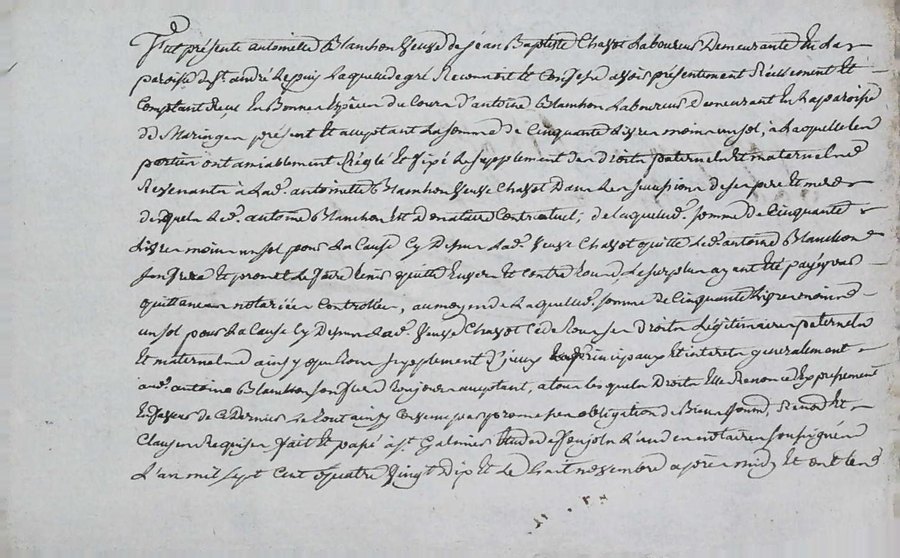 Fut présente antoinete Blanchon Veuve de jean Baptiste Chazot Laboureur Demeurante En La
paroise de St andré Le puy Laquelle de gré Reconnoit Et Confesse avoir présentement Réellement Et
Comptant Reçu En Bonnes Espèces du Cours d'antoine Blanchon Laboureur demeurant En La paroise
de Maringes présent Et acceptant La somme de Cinquante Livres moins un sol, a Laquelle Les
parties ont amiablement Réglé Et fixé Le supplement des Droits paternels Et maternels
Revenants à Lad. antoinete Blanchon Veuve Chazot Dans Les successions de ses pere Et mere
desquels Led. antoine Blanchon Est Donataire Contractuel; de laquelle d. somme de Cinquante
Livres moins un sol pour La Cause Cy Dessus Lad. Veuve Chazot quitte Led. antoine Blanchon
son frere Et promet Le faire tenir quitte Envers Et contre tous, Le surplus ayant Eté payé par
quittances notariées Controllées, au moyen de Laquelle d. somme de Cinquante Livres moins
un sol pour La Cause Cy Dessus Lad. Veuve Chazot Cede tous ses Droits Légitimaires paternels
Et maternels ainsy que tous supplement d'iceux principaux Et interets generalement
aud. antoine Blanchon son frere toujours acceptant, a tous les quels Droits Elle Renonce Expressement
En faveur de Ce Dernier Le tout ainsy Convenu par promesses obligation de Biens Soumis. Renon. Et
Clauses Requises fait Et passé a St. Galmier Etude de L'un des notaires soussignés
L'an mil sept Cent Quatre Vingt Dix Et Le huit novembre après midy Et ont Les